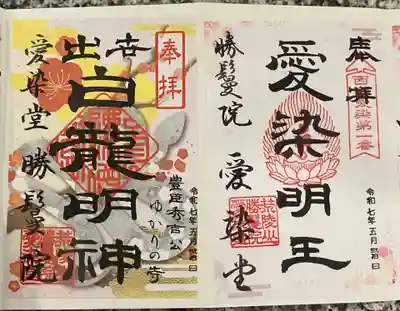 奉拝
愛染明王
勝鬘院 愛染堂
令和七年五月 日
奉拝
出世
白龍明神
豊臣秀吉公
ゆかりの寺
令和七年五月 日
愛染堂 勝鬘院